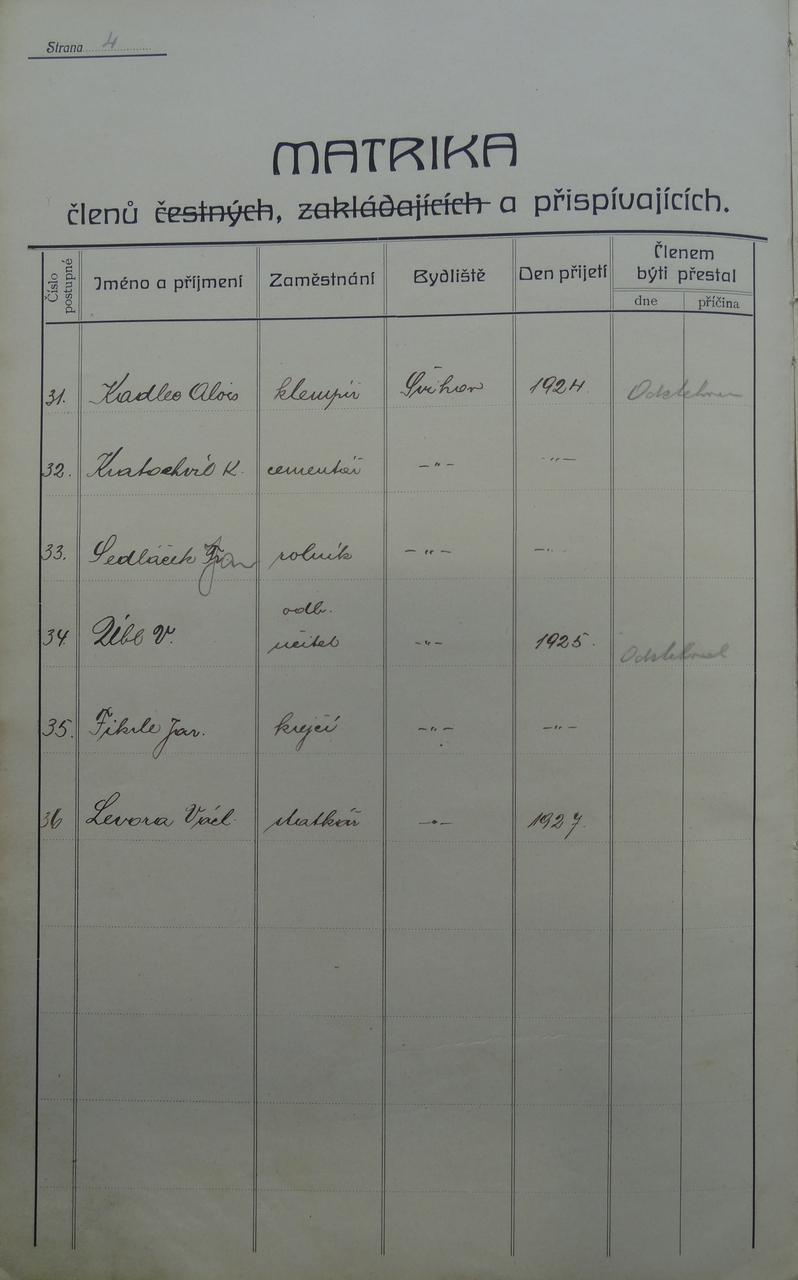 Strana 4
MATRIKA
členů čestných, zakládajících a přispívajících.
Číslo postupné
Jméno a příjmení
Zaměstnání
Bydliště
Den přijetí
Členem
býti přestal
dne
příčina
31. Kadlec Alois klempíř Švihov 1924.
32. Kratochvíl K. cementář –"– –"–
33. Sedláček Jan rolník –"– –"–
odb.
34. V. učitel –"– 1925.
35. Fikrle Jan. krejčí –"– –"–
36 Levora Václ. statkář –"– 1927.